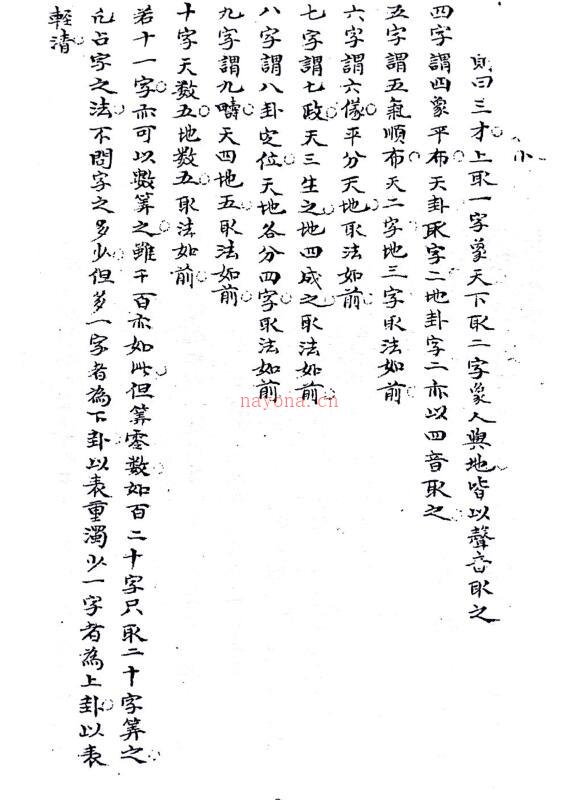 小
則曰三才上取一字象天下取二字象人與地皆以聲音取之
四字謂四象平布天卦取字二地卦字二亦以四音取之
五字謂五氣順布天二字地三字取法如前
六字謂六儀平分天地取法如前
七字謂七政天三生之地四成之取法如前
八字謂八卦定位天地各分四字取法如前
九字謂九疇天四地五取法如前
十字天数五地数五取法如前
若十一字亦可以數筭之雖千百亦如此但筭零數如百二十字只取二十字筭之
凡占字之法不問字之多少但多一字者為下卦以表重濁少一字者為上卦以表
輕清
nayona.cn